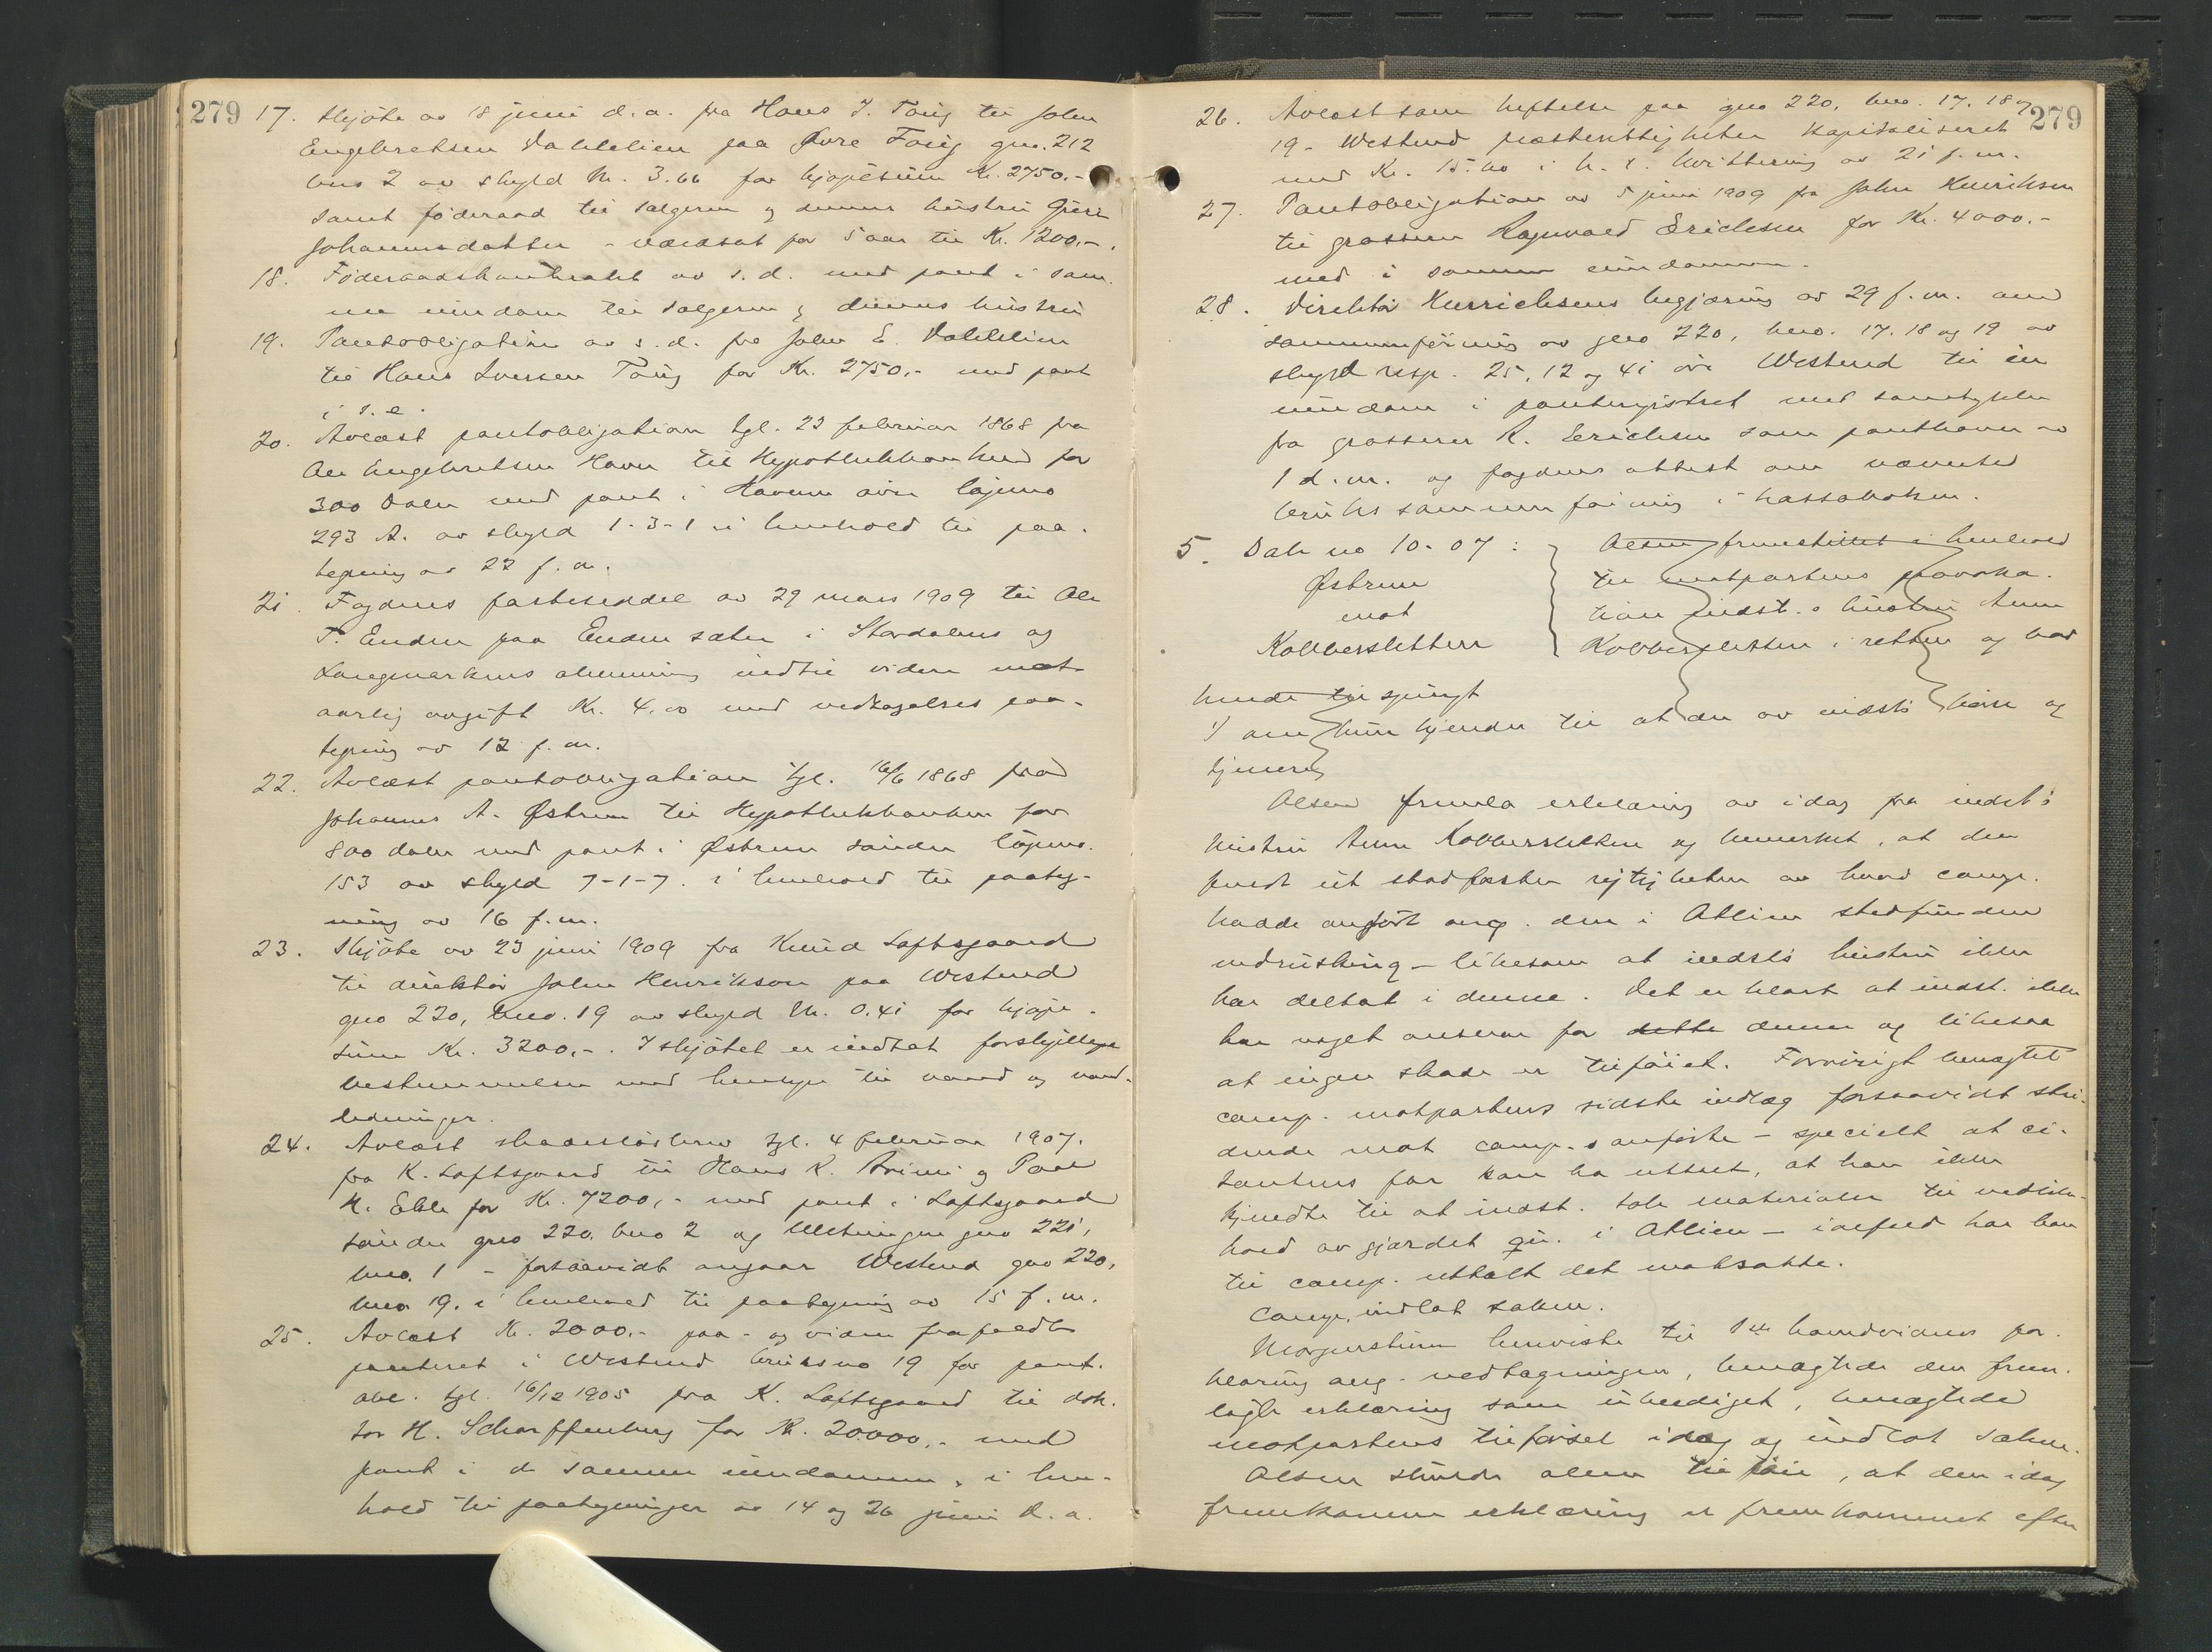 279
17. Skjöte av 18 juni d.a. fra Hans I. Töig til John
Engebretsen Dahllien paa Övre Töig gno. 212
bno 2 av skyld M. 3.66 for kjöpesum Kr. 2750.-
samt föderaad til sælgeren og dennes hustru Guri
Johannesdatter - værdsat for 5 aar til Kr. 1200.-.
18. Föderaadskontrakt av s.d. med pant i sam-
me eiendom til sælgeren & dennes hustru
19. Pantobligation av s.d. fra John E. Dahllien
til Hans Iversen Töig for Kr. 2750.- med pant
i s.e.
20. Avlæst pantobligation tgl. 23 februar 1868 fra
Ole Engebretsen Haven til Hypothekbanken for
300 daler med pant i Haven övre löpeno
293 A. av skyld 1-3-1 i henhold til paa-
tegning av 22 f.m.
21. Fogdens fæsteseddel av 29 mars 1909 til Ole
T. Enden paa Enden sæter i Stordalens og
Langmarkens almenning indtil videre mot
aarlig avgift Kr. 4.00 med vedtagelses paa-
tegning av 12 f.m.
22. Avlæst pantobligation tgl. 16/6 1868 fra
Johannes A. Østrem til Hypothekbanken for
800 daler med pant i Østrem söndre löpeno.
153 av skyld 7-1-7. i henhold til paateg-
ning av 16 f.m.
23. Skjöte av 23 juni 1909 fra Knud Loftsgaard
til direktör John Henrikson paa Westend
gno 220, bno. 19 av skyld M. 0.41 for kjöpe-
sum Kr. 3200,-. I skjötet er indtat forskjellige
bestemmelser med hensyn til vand og vand-
ledninger.
24. Avlæst skadeslösbrev tgl. 4 februar 1907.
fra K. Loftsgaard til Hans K. Brimi og Paal
K. Ekle for Kr. 7200,- med pant i Loftsgaard
söndre gno 220, bno 2 og gno 221,
bno. 1 - forsaavidt angaar Westend gno 220,
bno 19. i henhold til paategning av 15 f.m.
25. Avlæst Kr. 2000.- paa- og videre frafaldt
panteret i Westend bruksno 19 for pant.
obl. tgl. 16/12 1905 fra K. Loftsgaard til dok-
tor H. Scharffenberg for Kr. 20000,- med
pant i de samme eiendomme, i hen-
hold til paategninger av 14 og 26 juni d.a.
279
26. Avlæst som heftelse paa gno 220, bno. 17. 18 og
19 - Westend fæsterettigheten kapitaliseret
med Kr. 15.00 i h. t. kvittering av 21 f.m.
27. Pantobligation av 5 juni 1909 fra John Henriksen
til grosserer Ragnvald Erichsen for Kr. 4000.-
med i samme eiendomme.
28. Direktör Henrichsens begjæring av 29 f.m. om
sammenföining av gno 220, bno. 17. 18 og 19 av
skyld resp. 25, 12 og 41 öre Westend til en
eiendom i panteregistret med samtykke
fra grosserer R. Erichsen som panthaver av
1 d.m. og fogdens attest om nævnte
bruks sammenföining i kassaboken.
5. Sak no 10-07:
Østrem
mot
Kobbersletten
Olsen fremstillet i henhold
til motpartens provoka-
tion indst.s hustru Anne
Kobbersletten i retten og bad
hende tilspurgt
1) om hun kjender til at den av indst.s heise og
tjenere
Olsen fremla erklæring av idag fra indst.s
hustru Anne Kobberslletten og bemerket, at den
fuldt ut stadfæster rigtigheten av hvad comp.
hadde anfört ang. den i Atlien stedfundne
indrustning - likesom at indst.s hustru ikke
har deltat i denne. Det er klart at indst. ikke
har noget ansvar for dette denne og likesaa
at ingen skade er tilföiet. Forövrigt benegtet
comp. motpartens sidste indlæg forsaavidt stri-
dende mot comp.s anförte - specielt at ci-
tantens far kan ha uttalt, at han ikke
kjendte til at indst. tok materialer til vedlike-
hold av gjærdet qu. i Atlien - ialfald har han
til comp. uttalt det motsatte.
Comp. indlot saken.
Morgenstierne henviste til 1ste hovedvidnes for-
klaring ang. vedtagningen, benegtede den frem-
lagte erklæring som ubeediget, benegtede
motpartens tilförsel idag og indlot saken.
Olsen skulde alene tilföie, at den idag
fremkomne erklæring er fremkommet efter